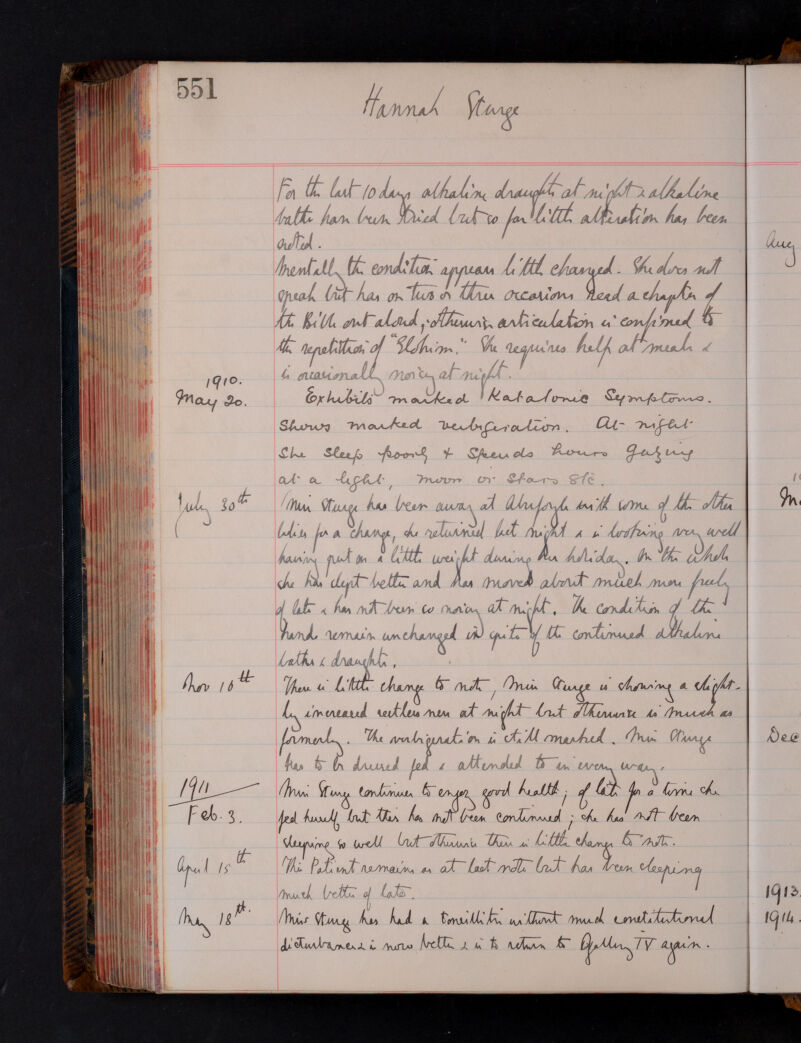 551
Hannah Sturge
For the last 10 days alkaline draughts at night & alkaline
baths have been tried but so far little alteration has been
noted.
Mentally the condition appears little changed. She does not
speak but has on two or three occasions read a chapter of
the Bible out aloud; otherwise articulation is confined to
the repetition of "Elohim." She requires help at meals &
is occasionally noisy at night.
1910.
May 20. Exhibits marked Katatonic Symptoms.
Shows marked verbigeration. At night
She sleeps poorly & spends hours gazing
at a light, moon or stars etc.
July 30th Miss Sturge has been away at with some of the other
ladies for a change, she returned last night & is looking very well
having put on a little weight during her holiday. On the whole
she has slept better and has moved about much more freely
of late & has not been so noisy at night. The condition of the
hands remain unchanged in spite of the continued alkaline
baths & draughts.
Nov 10th There is little change to note, Miss Sturge is showing a slight-
ly increased restlessness at night but otherwise is much as
formerly. The verbigeration is still marked. Miss Sturge
has to be dressed fed & attended to in every way.
1911
Feb. 3. Miss Sturge continues to enjoy good health; of late for a time she
fed herself but this has not been continued; she has not been
sleeping so well but otherwise there is little change to note.
April 15th The Patient remains as at last note but has been sleeping
much better of late.
May 18th. Miss Sturge has had a tonsillitis without much constitutional
disturbance & is now better & is to return to Gallery IV again.
Aug
Dec
1913.
1914.